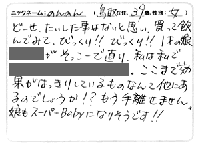 ニックネーム: のんのん (鳥取在住, 39歳, 性別: 女)
どーせ、たいした事はないと思い、買って飲
んでみて、びっくり!! びっくり!! 1才の娘
が そっこーで直り、私は私で
。ここまで効
果がはっきりしているものなんて他にあ
るのでしょうか!? もう手離せません。
娘もスーパーBabyになりそうです!!